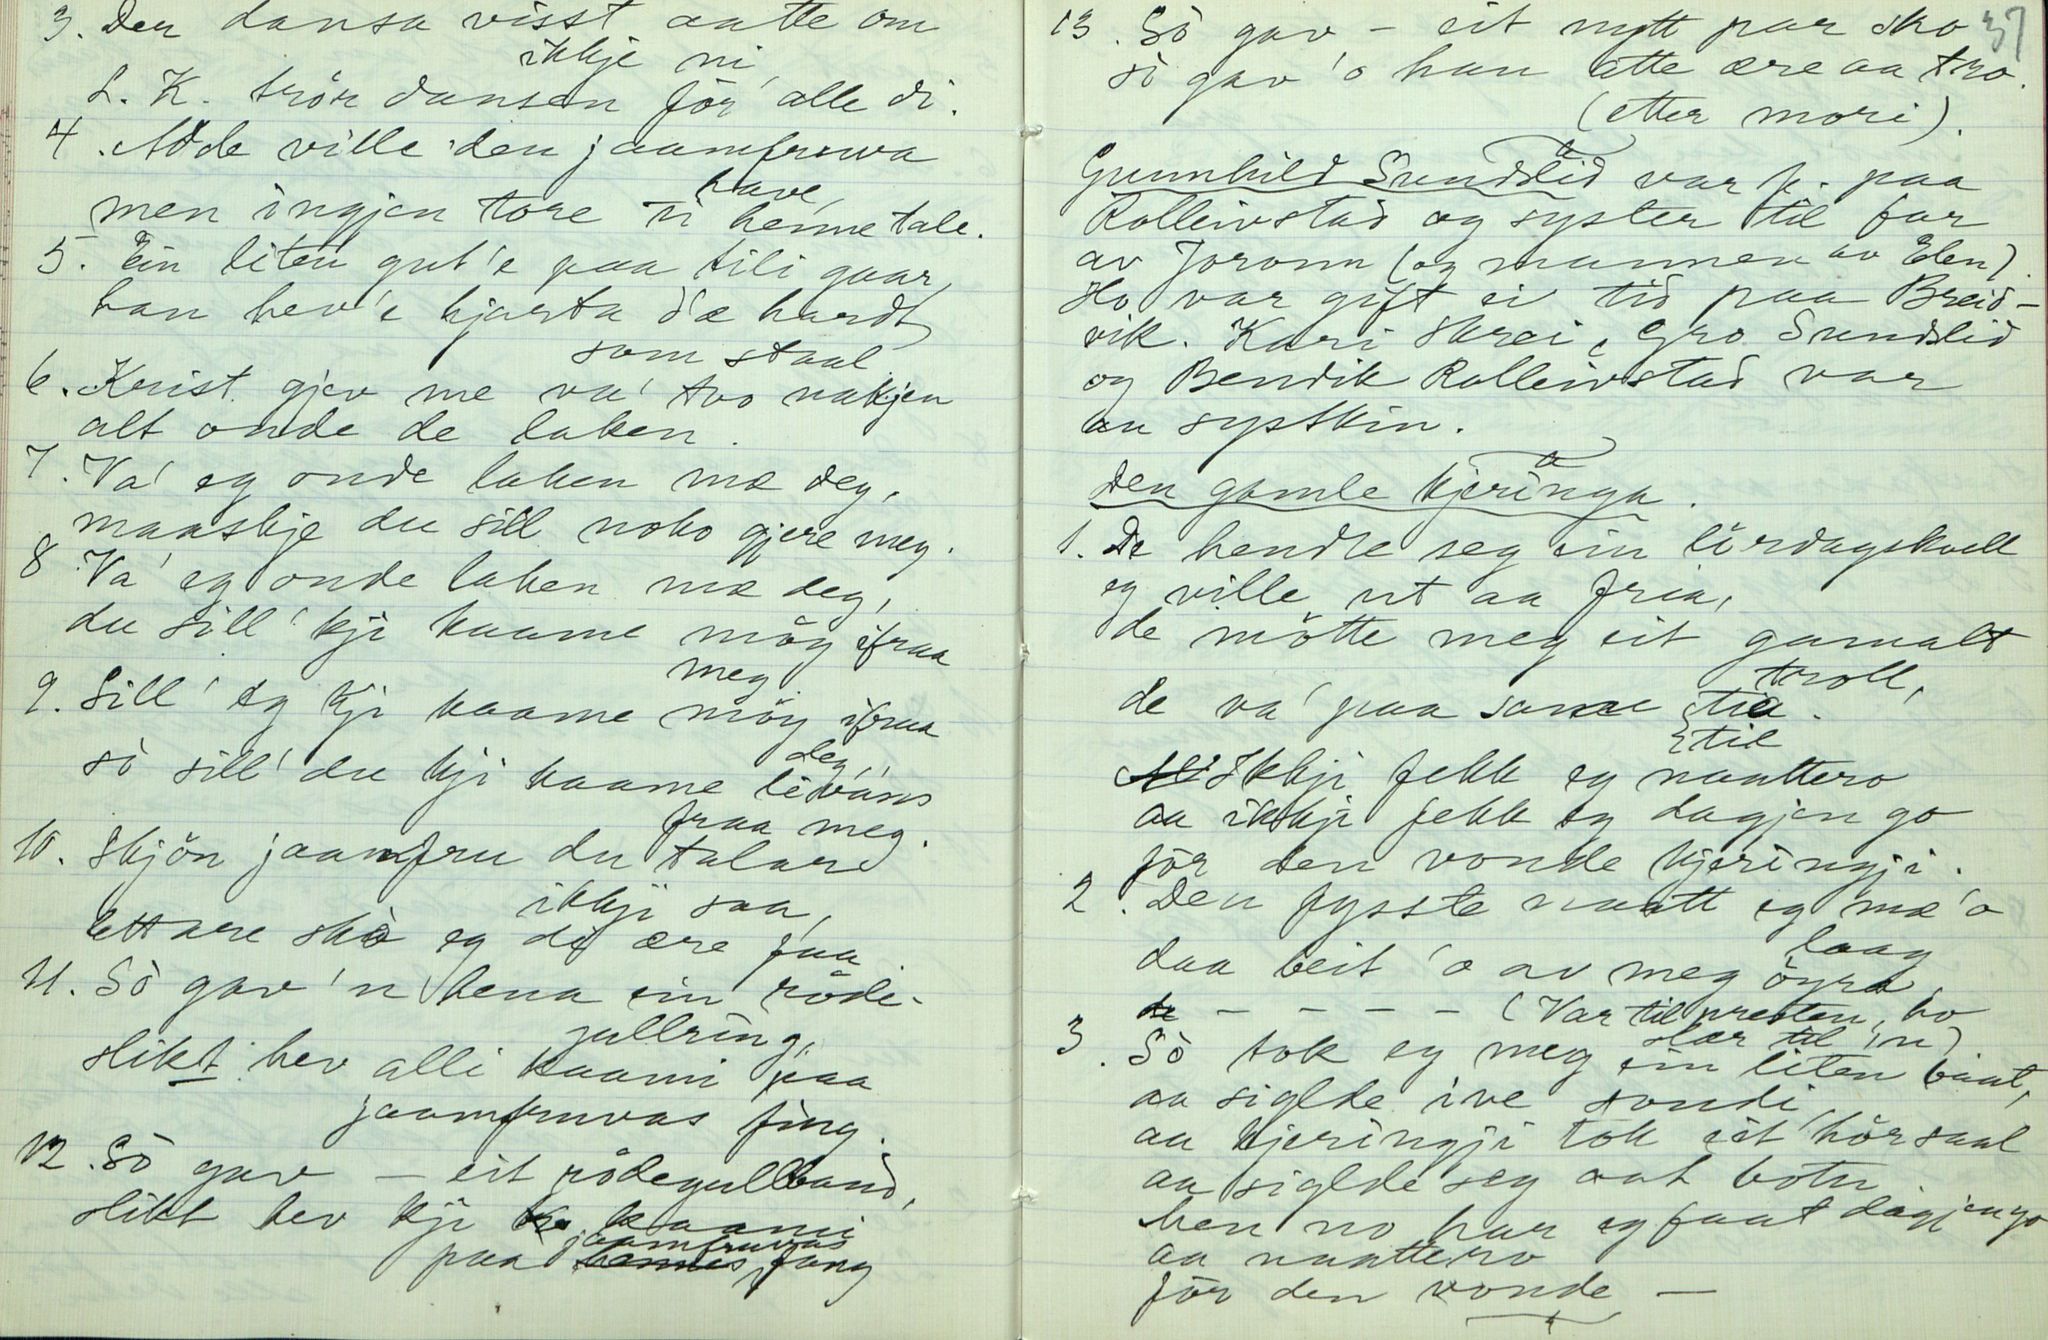 3. Den dansa visst aatte om
ikkje ni,
L. K. trör dansen för alle di.
4. Adde ville den jaamfruva
have,
men ingjen tore ti henne tale.
5. Ein liten gut'e paa tili gaar,
han hev'e hjarta d'æ hardt
som staal
6. Krist gjev me va' tvo nakjen
alt onde de laken.
7. Va' eg onde laken mæ deg,
maaskje du sill noko gjere meg.
8. Va' eg onde laken mæ deg,
du sill' kji kaame möy ifraa
meg.
9. Sill' eg kji kaame möy ifraa
deg,
sò sill' du kji kaame livans
fraa meg.
10. Skjön jaamfru du talar
ikkji saa,
lettare skò eg di ære faa
11. Sò gav'n hena ein röde-
gullring,
slikt hev alli kaami paa
jaamfruvas fing.
12. Sò gav – eit rödegullband,
slikt hev kji kaami
paa jaamfruvas fang
37
13. Sò gav – eit nytt par sko
sò gav'o han atte ære aa tro.
(etter mori).
Gunnhild Sundslid var k. paa
Rolleivstad og syster til far
av Joronn (og mannen av Elen).
Ho var gift ei tid paa Breid-
vik. Kari Skrei, Gro Sundslid
og Bendik Rolleivstad var
au systkin.
Den gamle kjeringa.
1. De hendte seg ein lördagskvell
eg ville ut aa fria,
de mötte meg eit gamalt
troll,
de va' paa same tia.
til
Ikkji fekk eg naattero
aa ikkji fekk eg dagjen go
för den vonde kjeringji.
2. Den fysste naatt eg mæ'o
laag
daa beit 'o av meg öyra
– – – – – (Var til presten, ho
slær til 'n)
3. Sò tok eg meg ein liten baat,
aa siglde ive sondi,
aa kjeringji tok eit hörsaal
aa siglde seg aat botn
Men no har eg faat dagjen go
aa naattero
för den vonde –